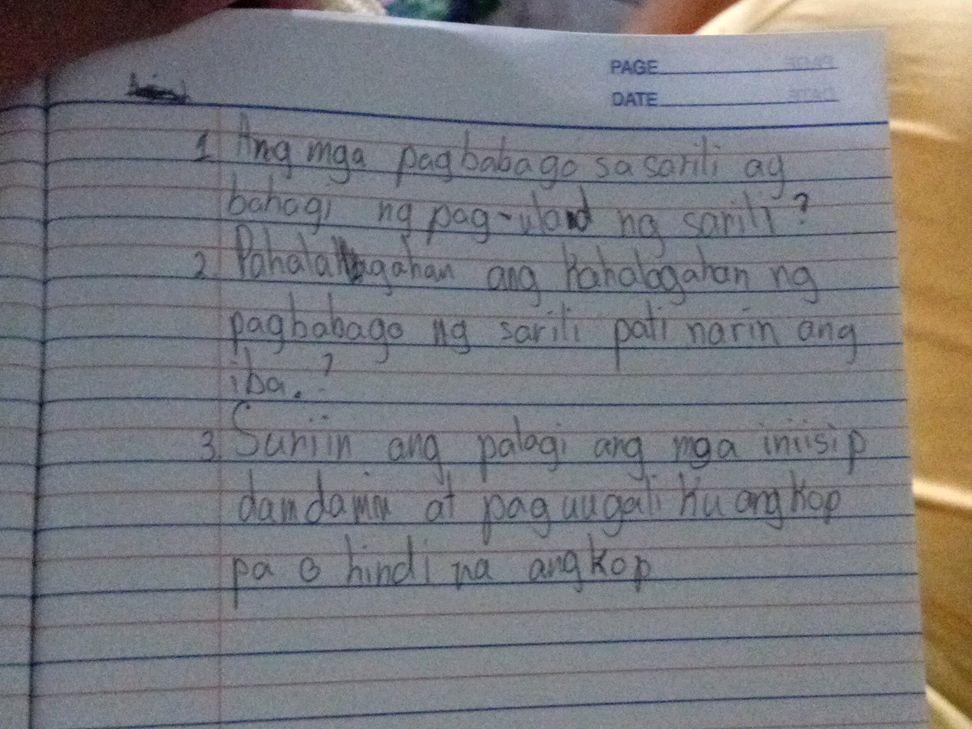 PAGE
DATE
1 Ang mga pagbabago sa sarili ay
bahagi ng pag-ulad ng sarili?
2. Pahalagahan ang kahalagahan ng
pagbabago ng sarili pati narin ang
iba.?
3. Suriin ang palagi ang mga iniisip
damdamin at paguugali ku angkop
pa o hindi na angkop